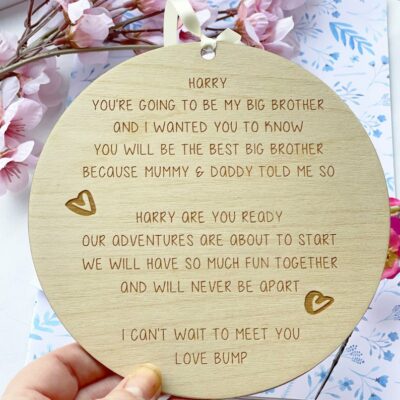 HARRY
YOU'RE GOING TO BE MY BIG BROTHER
AND I WANTED YOU TO KNOW
YOU WILL BE THE BEST BIG BROTHER
BECAUSE MUMMY & DADDY TOLD ME SO
HARRY ARE YOU READY
OUR ADVENTURES ARE ABOUT TO START
WE WILL HAVE SO MUCH FUN TOGETHER
AND WILL NEVER BE APART
I CAN'T WAIT TO MEET YOU
LOVE BUMP